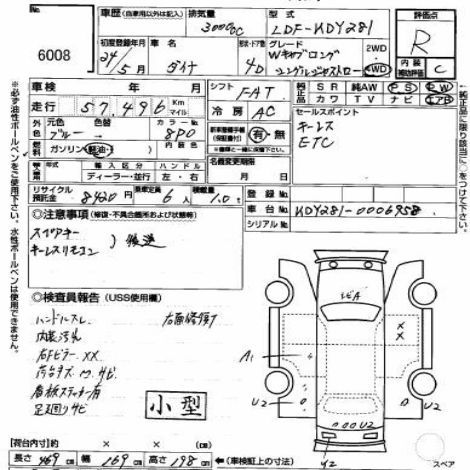 6008
車歴 (自家用以外は記入) 排気量 3000cc 型式 LDF-KDY281 評価点 R
初度登録年月 24年 5月 車名 ダイナ 形状・ドア数 4D グレード Wキャブロング シングルジャストロー 2WD 4WD 内装補助評価 C
車検 年 月 シフト FAT 純正品 SR 純AW PS PW
走行 57,496 Km マイル 冷房 AC カワ TV ナビ エアB
外色 元色 ブルー → 色替 カラーNo. 8P0 内装色 新車整備手帳(保証書付) 有・無 セールスポイント
燃料 ガソリン・軽油・ ( ) キーレス
輸入区分 ハンドル ETC
ディーラー・並行 左・右 名義変更期限 月 日
リサイクル預託金 8420円 乗車定員 6人 積載量 1.0t 登録No.
車台No. KDY281-0006958
シリアルNo.
◎注意事項 (修復・不具合箇所および状態等)
スペアキー
キーレスリモコン ) 後送
◎検査員報告 (USS使用欄)
ハンドルスレ 右面修復有
内装汚れ
右Fピラー XX
荷台キズ・凹・サビ
看板ステッカー有
足廻りサビ
小型
A1
U2
U2
ビA
XX
U2
Y2
荷台内寸 × × (cm)
長さ 469cm 幅 169cm 高さ 198cm ←(車検証上の寸法)
スペア
※必ず油性ボールペンをご使用下さい。水性ボールペンは使用できません。